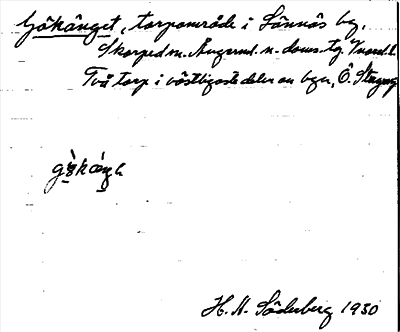 Gökänget, torpområde i Sönnäs by,
Skorped sn. Ångerml. n. doms. tg.
Två torp i västligaste delen av byn, Ö.
H. N. Söderberg 1930